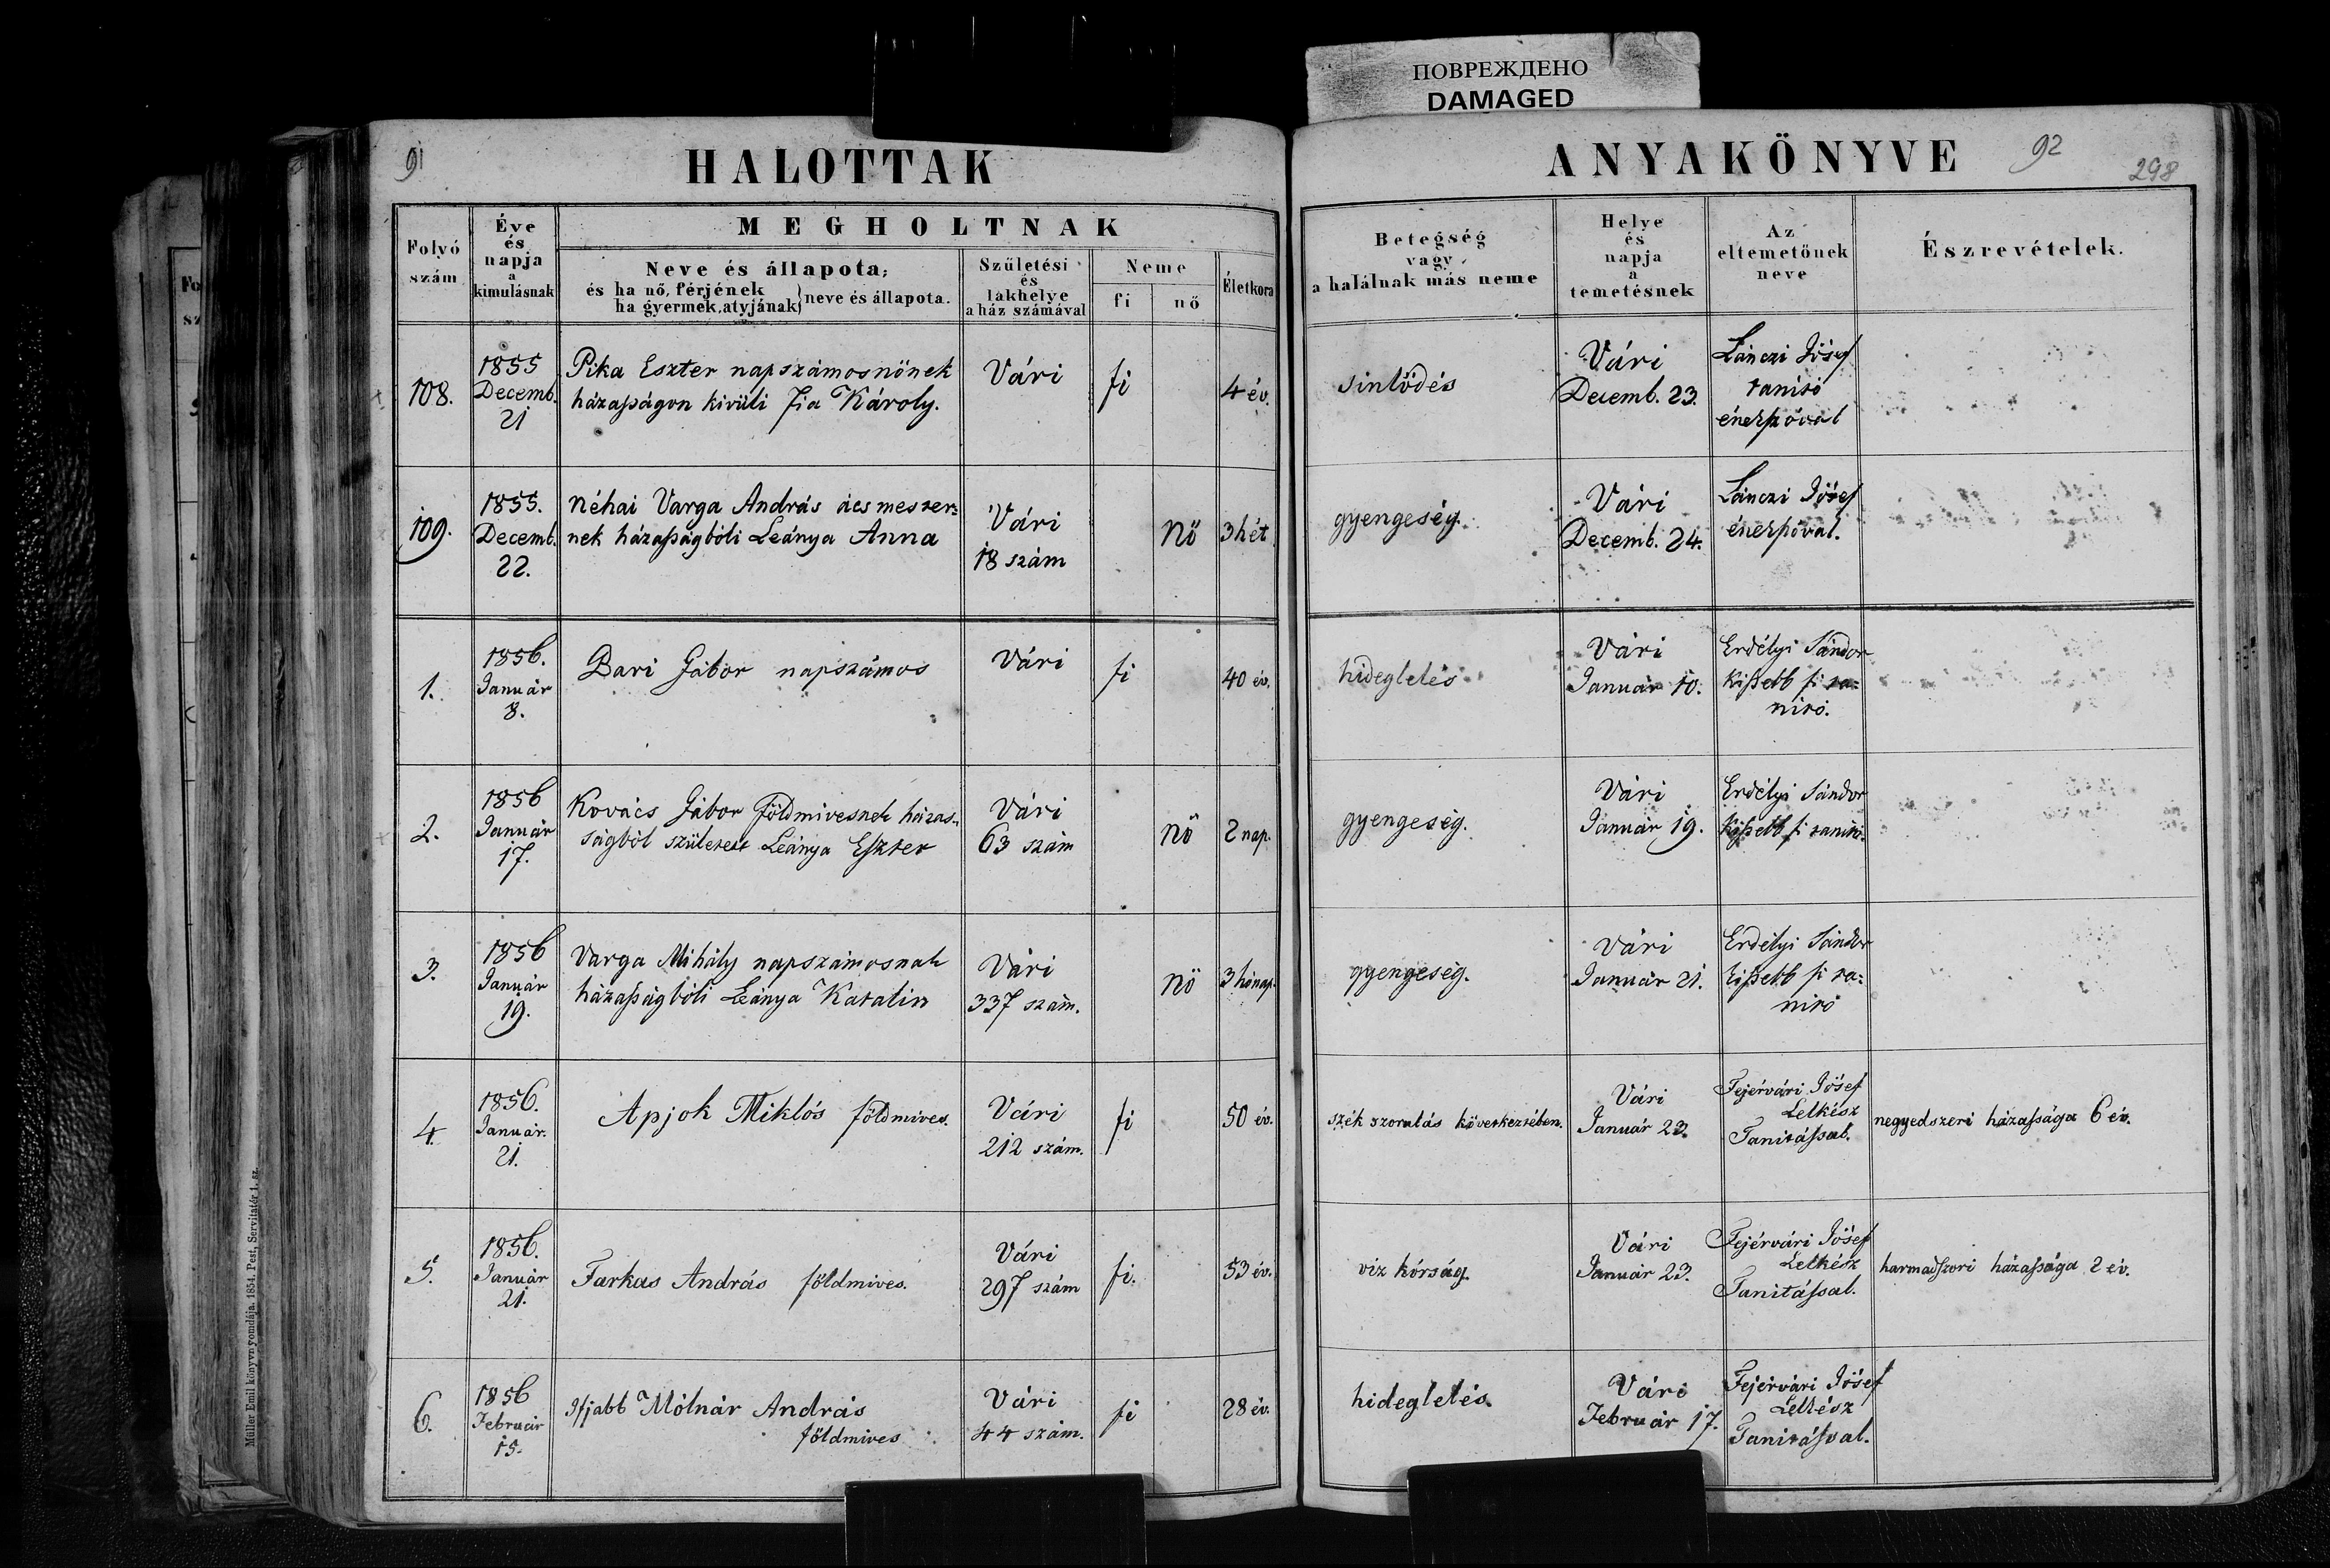 ПОВРЕЖДЕНО
DAMAGED
91
HALOTTAK
ANYAKÖNYVE
92
298
Folyó
szám
Éve
és
napja
a
kimulásnak
MEGHOLTNAK
Neve és állapota,
és ha nő, férjének
ha gyermek, atyjának
neve és állapota.
Születési
és
lakhelye
a ház számával
Neme
fi
nő
Életkora
Betegség
vagy
a halálnak más neme
Helye
és
napja
a
temetésnek
Az
eltemetőnek
neve
Észrevételek.
108.
1855
Decemb.
21
Pika Eszter napszámosnőnek
házaſságon kivüli fia Károly.
Vári
fi
4 év.
sinlődés
Vári
Decemb. 23.
Lánczi Jósef
tanitó
énekszóval
109.
1855.
Decemb.
22.
Néhai Varga András ácsmester-
nek házaſságbóli Leánya Anna
Vári
18 szám
Nő
3 hét
gyengeség.
Vári
Decemb. 24.
Lánczi Jósef
énekszóval.
1.
1856.
Január
8.
Bari Gábor napszámos
Vári
fi
40 év.
hideglelés
Vári
Január 10.
Erdélyi Sándor
kiſsebb fi ta-
nitó.
2.
1856
Január
17.
Kovács Gábor földmivesnek házas-
ságból született Leánya Eſzter
Vári
63 szám
Nő
2 nap.
gyengeség.
Vári
Január 19.
Erdélyi Sándor
kiſsebb fi tanitó.
3.
1856
Január
19.
Varga Mihály napszámosnak
házaſságbóli Leánya Katalin
Vári
337 szám.
Nő
3 hónap.
gyengeség.
Vári
Január 21.
Erdélyi Sándor
kiſsebb fi ta-
nitó
4.
1856.
Január.
21.
Apjok Miklós földmives.
Vári
212 szám.
fi
50 év.
szék szorulás következtében.
Vári
Január 23.
Fejérvári Jósef
Lelkész
Tanitáſsal.
negyedszeri házaſsága 6 év.
5.
1856.
Január
21.
Farkas András földmives.
Vári
297 szám
fi.
53 év.
viz kórság.
Vári
Január 23.
Fejérvári Jósef
Lelkész
Tanitáſsal.
harmadſzori házaſsága 2 év.
6.
1856
Február
15.
Ifjabb Mólnár András
földmives
Vári
44 szám.
fi
28 év.
hideglelés.
Vári
Február 17.
Fejérvári Jósef
Lelkész
Tanitáſsal.
Müller Emil könyvnyomdája. 1854. Pest, Servitatér 1. sz.